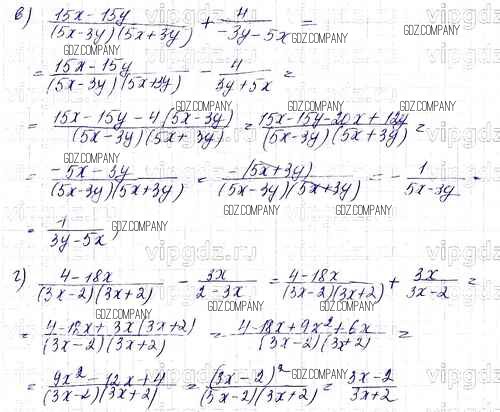 в) (15x - 15y)/((5x-3y)(5x+3y)) + 4/(-3y-5x) =
= (15x - 15y)/((5x-3y)(5x+3y)) - 4/(3y+5x) =
= (15x - 15y - 4(5x-3y))/((5x-3y)(5x+3y)) = (15x-15y-20x+12y)/((5x-3y)(5x+3y)) =
= (-5x-3y)/((5x-3y)(5x+3y)) = (-(5x+3y))/((5x-3y)(5x+3y)) = - 1/(5x-3y) =
= 1/(3y-5x)
г) (4-18x)/((3x-2)(3x+2)) - 3x/(2-3x) = (4-18x)/((3x-2)(3x+2)) + 3x/(3x-2) =
= (4-18x+3x(3x+2))/((3x-2)(3x+2)) = (4-18x+9x²+6x)/((3x-2)(3x+2)) =
= (9x²-12x+4)/((3x-2)(3x+2)) = (3x-2)²/((3x-2)(3x+2)) = (3x-2)/(3x+2)
GDZ.COMPANY
vipgdz.ru